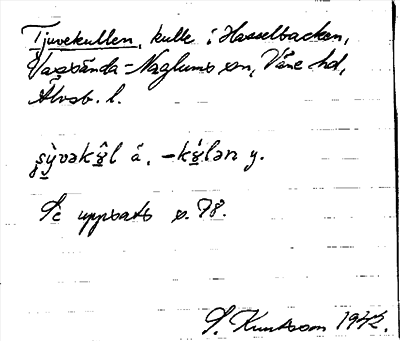 Tjuvekullen, kulle i Hasselbacken,
Vassända-Naglums sn, Väne hd,
Älvsb. l.
ş̀y̱vəkɣ̂l á, -kɣ́lən y.
Se uppsats s. 78.
S. Knutsson 1942.